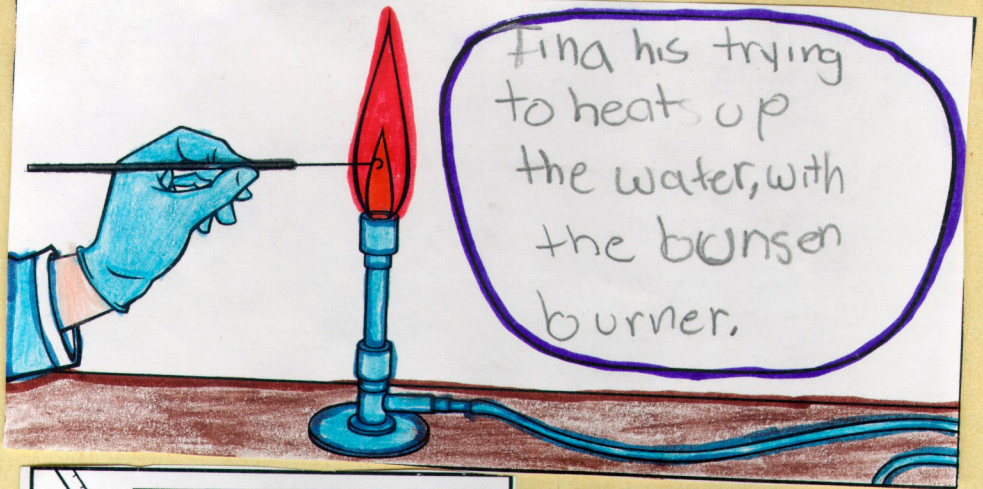 Fina his trying
to heats up
the water, with
the bunsen
burner.